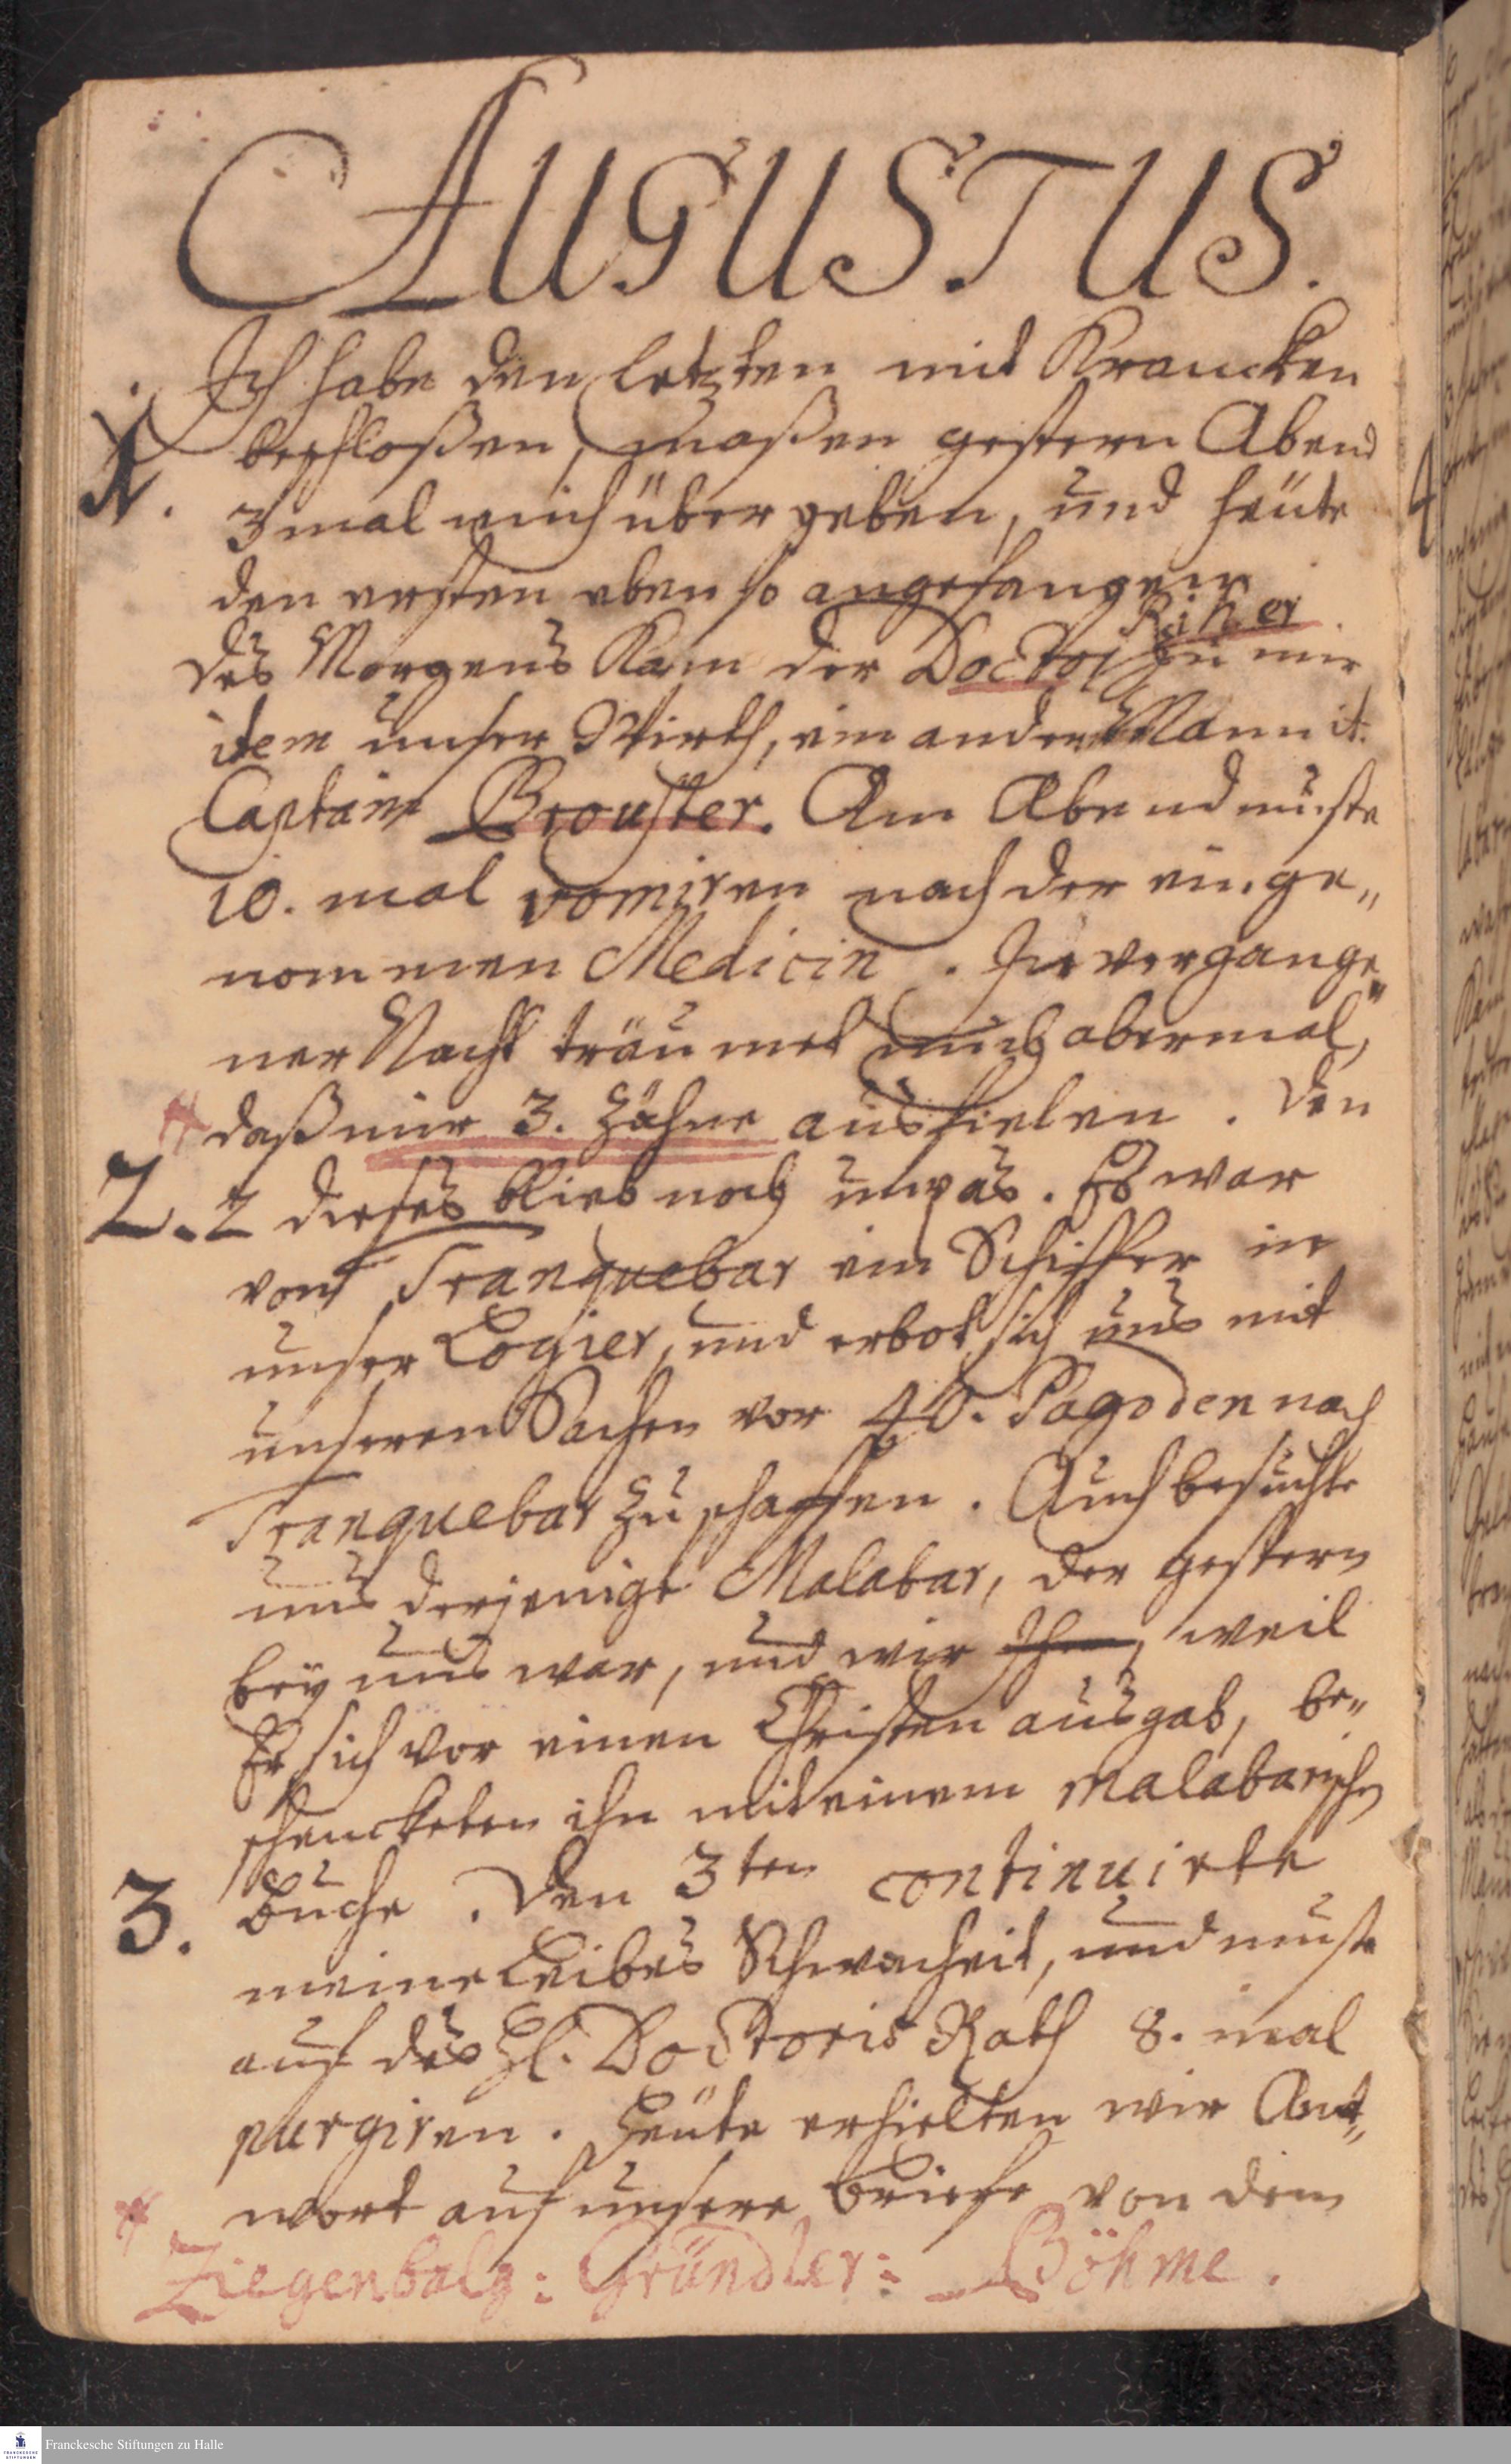 AUGUSTUS.
Ich habe den letzten mit Krancken
1. beschloßen, maßen gestern Abend
3 mal mich übergeben, und heüte
den ersten eben so angefangen
Riker
des Morgens Kam der Doctor zu mir
item unser Wirth, ein ander Mann it.
Captain Brouster. Am Abend muste
10. mal vomiren nach der einge„
nommen Medicin. In vergange„
ner Nacht träumet mich abermal,
daß mir 3. Zähne ausfielen. Den
2. 2 dieses blieb noch unpas. Es war
von Tranquebar ein Schiffer in
unser Logier, und erbot sich uns mit
unseren Sachen vor 40. Pagoden nach
Tranquebar zu schaffen. Auch besuchte
uns derjenige Malabar, der gestern
bey uns war, und wir Ihm, weil
Er sich vor einen Christen ausgab, be„
schenckten ihn mit einem Malabarischen
3. Buche. Den 3ten continuirte
meine Leibes Schwacheit, und muste
auf des Hl. Doctoris Rath 8. mal
purgiren. Heüte erhielten wir Ant„
wort auf unsere Briefe von dem
Ziegenbalg: Gründler: Böhme.
Franckesche Stiftungen zu Halle